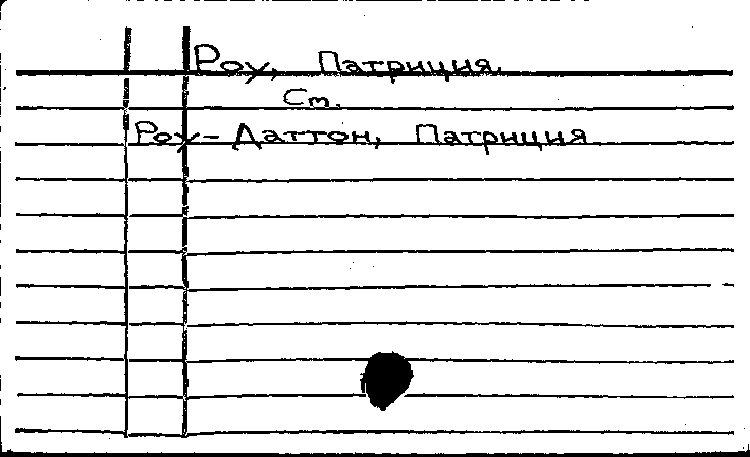 Роу, Патриция.
См.
Роу-Даттон, Патриция